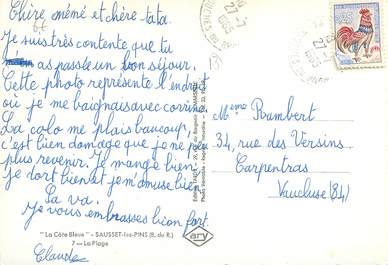 Chère mémé et chère tata.
Je suis très contente que tu
as passée un bon séjour.
Cette photo représente l'endroit
où je me baignais avec corrine
La colo me plais beaucoup,
c'est bien domage que je ne peu
plus revenir. Je mange bien
je dort bien et je m'amuse bien
La va.
Je vous embrasses bien fort.
Claude
Mme Rumbert
34, rue des Versins
Carpentras
Vaucluse (84)
"La Côte Bleue" - SAUSSET-les-PINS (B. du R.)
7 — La Plage
ary
27-7
1965
0,25